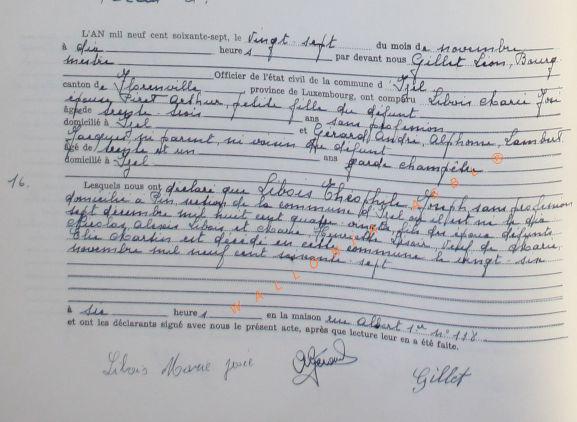 L'AN mil neuf cent soixante-sept, le vingt-sept du mois de novembre
à dix heures par devant nous Gillet Léon, Bourg
mestre Officier de l'état civil de la commune d'Izel
canton de Florenville province de Luxembourg, ont comparu Libois Marie José
épouse Piret Arthur, petite fille du défunt
âgée de trente-trois ans sans profession
domicilié à Izel et Gérard, André, Alphonse, Lambert
Jacques, ni parent, ni voisin du défunt
âgé de trente et un ans garde champêtre
domicilié à Izel
16.
Lesquels nous ont déclaré que Libois Théophile Joseph sans profession
domicilié à Pin section de la commune d'Izel où il est né le dix
sept décembre mil huit cent quatre-vingts, fils des époux défunts
Nicolas, Alexis Libois et Marie Henriette, veuf de Marie,
Martin est décédé en cette commune le vingt-six
novembre mil neuf cent soixante-sept
à six heures en la maison rue Albert 1er n° 118
et ont les déclarants signé avec nous le présent acte, après que lecture leur en a été faite.
WALLONIE
Libois Marie José
Gillet